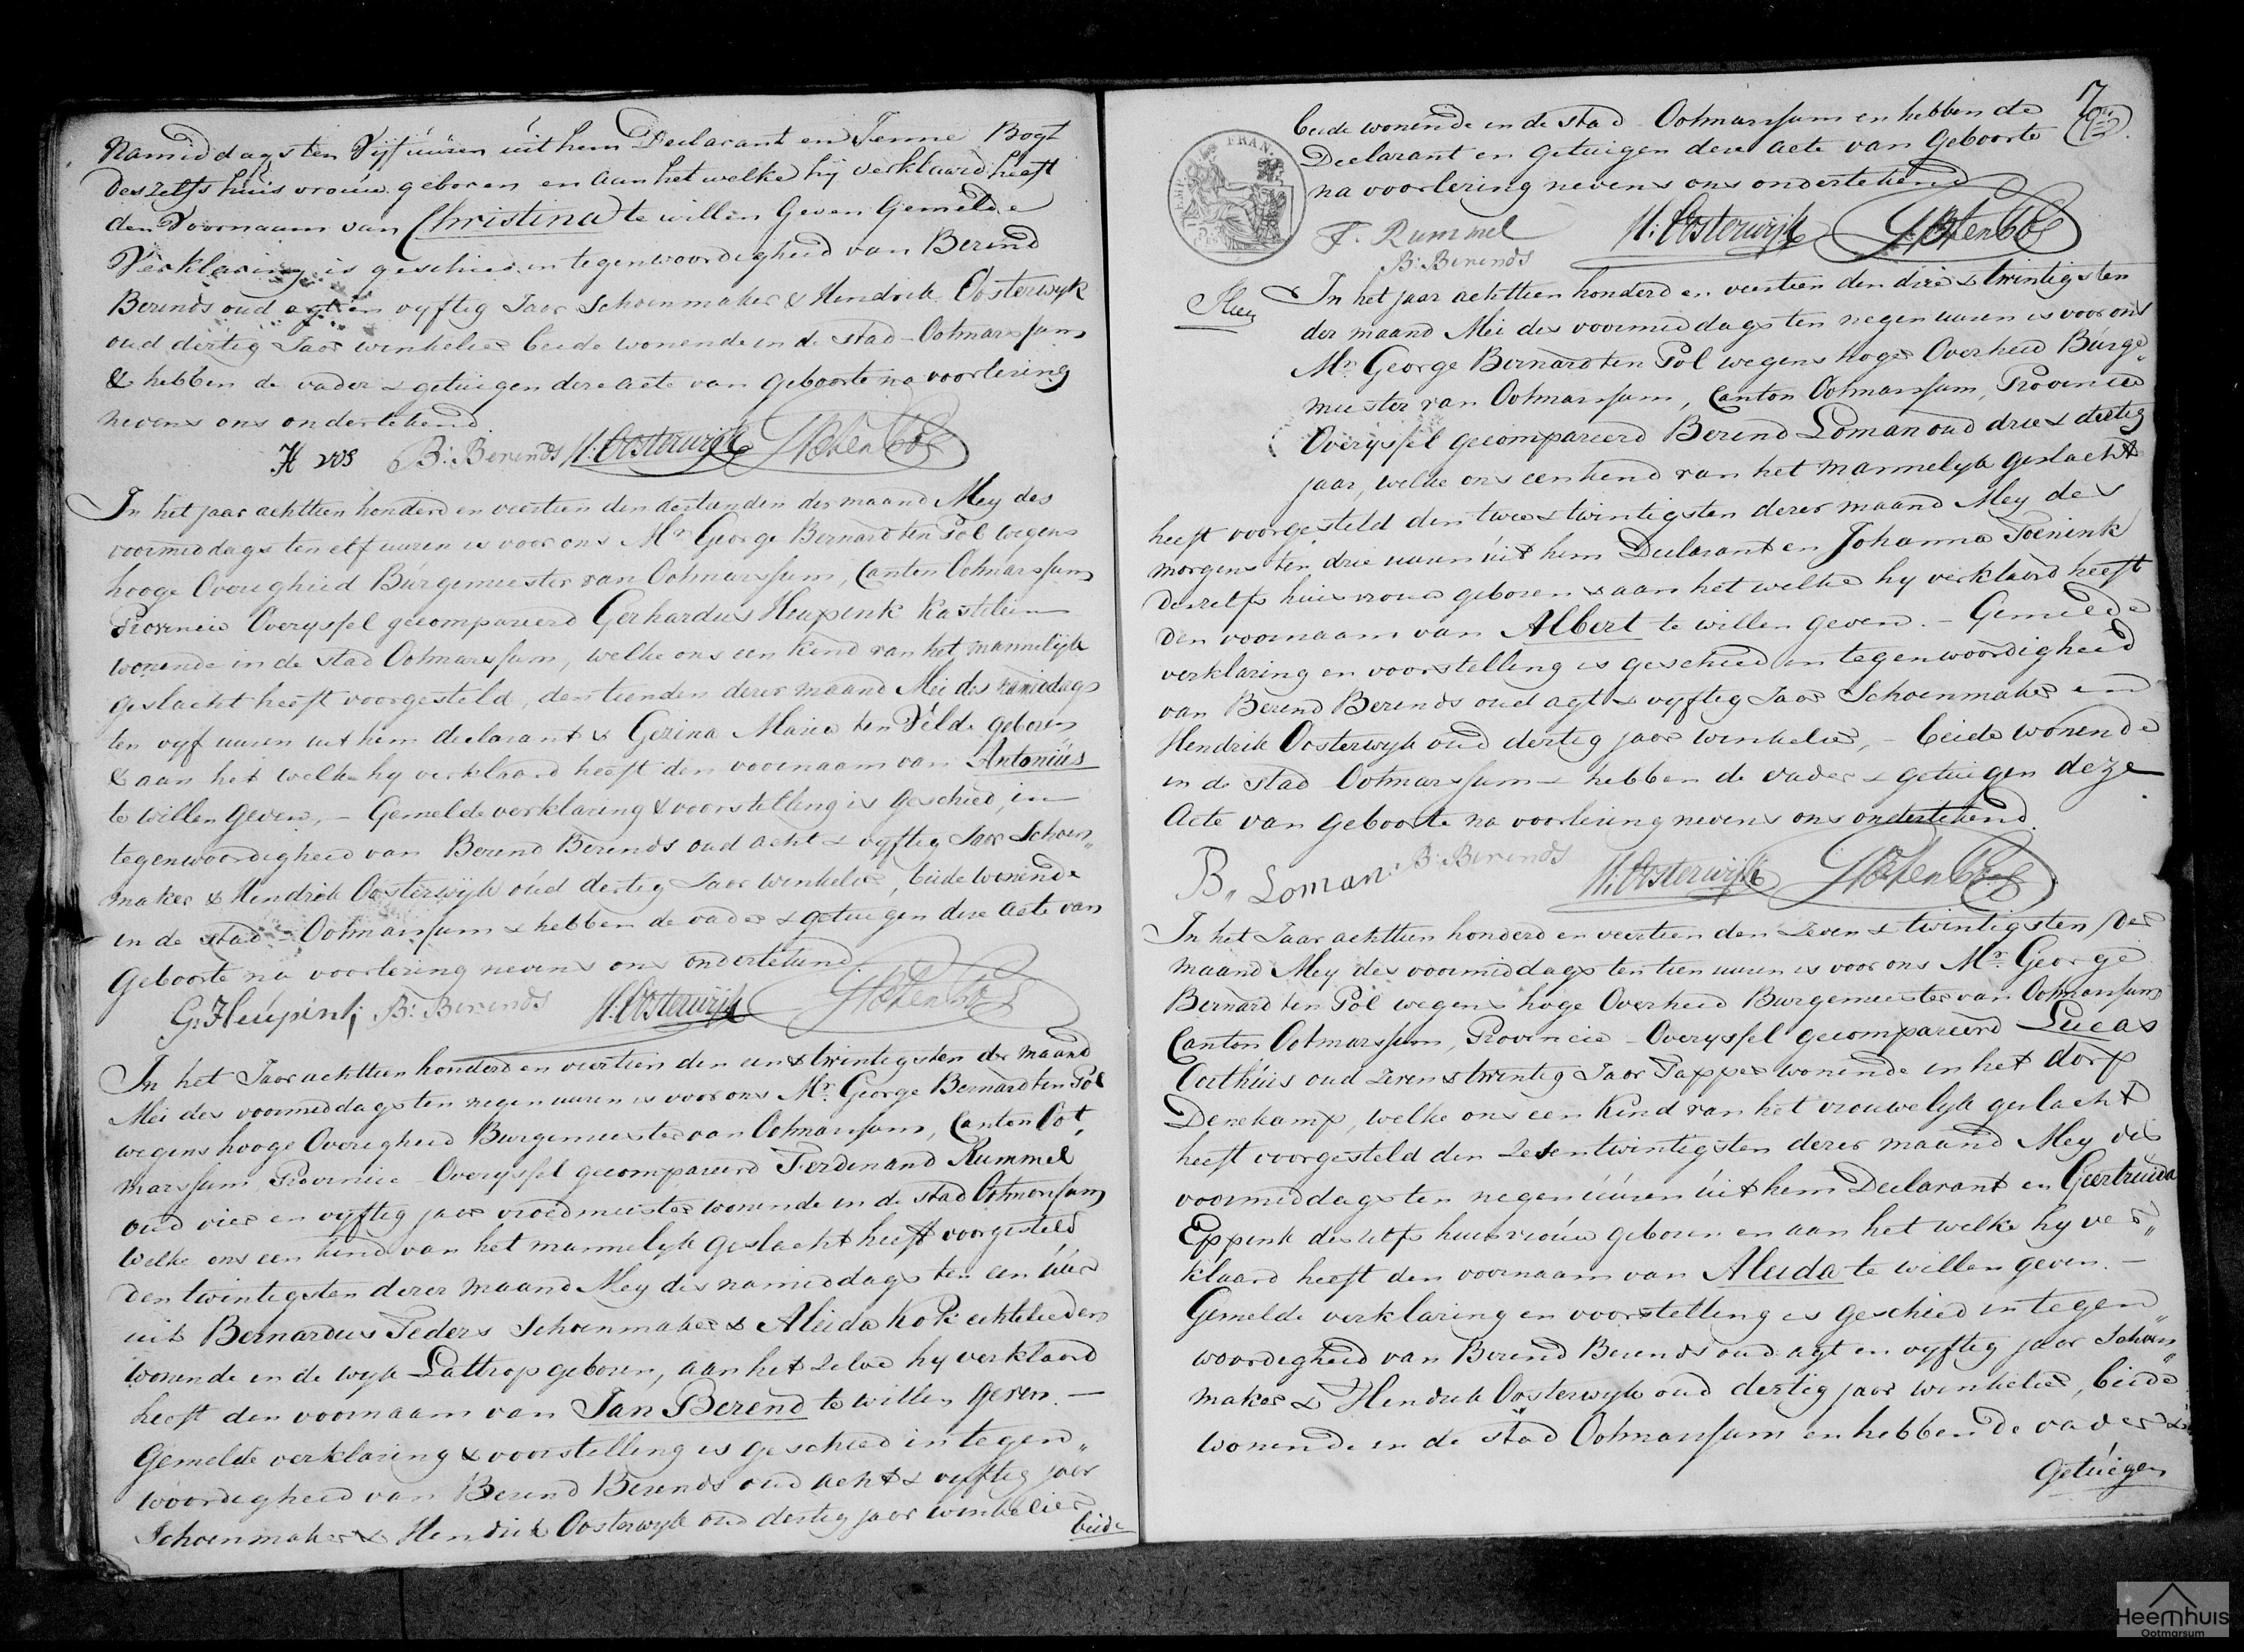 Namiddags ten Vijf uuren uit hem Declarant en Jenne Bogt
deszelfs huisvrouw geboren en aan het welke hij verklaard heeft
den Voornaam van Christina te willen Geven Gemelde
Verklaring is geschied in tegenwoordigheid van Berend
Berends oud agt en vyftig Jaar Schoenmaker & Hendrik Oosterwyk
oud dertig Jaar winkelier beide wonende in de stad Ootmarssum
& hebben de vader & getuigen dese acte van geboorte na voorlezing
nevens ons ondertekend
H vos B: Berends H: Oosterwijk
In het jaar achttien honderd en veertien den der maand Mey des
voormiddags ten elf uuren is voor ons Mr. George Bernard ten Pol wegens
hooge Overigheid Burgemeester van Ootmarssum, Canton Ootmarssum
Provincie Overyssel gecompareerd Gerhardus Heupink Kastelein
wonende in de stad Ootmarssum, welke ons een kind van het mannelyk
geslacht heeft voorgesteld, den tienden derer maand Mei des namiddags
ten vyf uuren uit hem declarant & Gezina Maria ten Velde geboren
& aan het welke hy verklaard heeft den voornaam van Antonius
te willen geven, – Gemelde verklaring & voorstelling is geschied, in
tegenwoordigheid van Berend Berends oud acht & vyftig Jaar Schoen„
maker & Hendrik Oosterwijk oud dertig Jaar winkelier, beide wonende
in de stad Ootmarssum & hebben de vader & getuigen dese acte van
Geboorte na voorlezing nevens ons ondertekend.
G: Heupink B: Berends H: Oosterwijk
In het Jaar achttien honderd en veertien den een & twintigsten der maand
Mei des voormiddags ten negen uuren is voor ons Mr. George Bernard ten Pol
wegens hooge Overigheid Burgemeester van Ootmarssum, Canton Oot„
marssum Provincie Overyssel gecompareerd Ferdinand Rummel
oud vier en vyftig jaar vroedmeester wonende in de stad Ootmarssum
welke ons een kind van het mannelyk geslacht heeft voorgesteld
den twintigsten derer maand Mey des namiddags ten een uur
uit Bernardus Peders Schoenmaker & Aleida Kok echtelieden
wonende in de wyk Lattrop geboren, aan het zelve hy verklaard
heeft den voornaam van Jan Berend te willen geven. —
Gemelde verklaring & voorstelling is geschied in tegen„
woordigheid van Berend Berends oud acht & vyftig jaar
Schoenmaker & Hendrik Oosterwyk oud dertig jaar winkelier
beide
7
beide wonende in de stad Ootmarssum en hebben de
Declarant en Getuigen dese acte van Geboorte
na voorlezing nevens ons ondertekend
FRAN.
F. Rummel H: Oosterwijk
B: Berends
In het jaar achttien honderd en veertien den drie & twintigsten
der maand Mei des voormiddags ten negen uuren is voor ons
Mr. George Bernard ten Pol wegens hoge Overheid Burge„
meester van Ootmarssum, Canton Ootmarssum, Provincie
Overyssel gecompareerd Berend Loman oud drie & dertig
jaar, welke ons een kend van het mannelyk geslacht
heeft voorgesteld den twee & twintigsten derer maand Mey des
morgens ten drie uuren uit hem Declarant en Johanna Poenink
deszelfs huisvrouw geboren & aan het welke hy verklaard heeft
den voornaam van Albert te willen geven. – Gemelde
verklaring en voorstelling is geschied in tegenwoordigheid
van Berend Berends oud agt & vyftig Jaar Schoenmaker en
Hendrik Oosterwyk oud dertig jaar winkelier, – beide wonende
in de stad Ootmarssum & hebben de vader & getuigen deze
Acte van geboorte na voorlezing nevens ons ondertekend.
B. Loman. B: Berends H: Oosterwijk
In het Jaar achttien honderd en veertien den zeven & twintigsten der
maand Mey des voormiddags ten tien uuren is voor ons Mr. George
Bernard ten Pol wegens hoge Overheid Burgemeester van Ootmarssum
Canton Ootmarssum, Provincie Overyssel gecompareerd Lucas
oud zeven & twintig Jaar Tapper wonende in het dorp
Denekamp, welke ons een Kind van het vrouwelyk geslacht
heeft voorgesteld den zesentwintigsten derer maand Mey des
voormiddags ten negen uuren uit hem Declarant en Geertruida
Eppink deszelfs huisvrouw geboren en aan het welke hy ver„
klaard heeft den voornaam van Aleida te willen geven. —
Gemelde verklaring en voorstelling is geschied in tegen„
woordigheid van Berend Berends oud agt en vyftig jaar Schoen„
maker & Hendrik Oosterwyk oud dertig jaar winkelier, beide
wonende in de stad Ootmarssum en hebben de vader &
Getuigen
Heemhuis
Ootmarsum